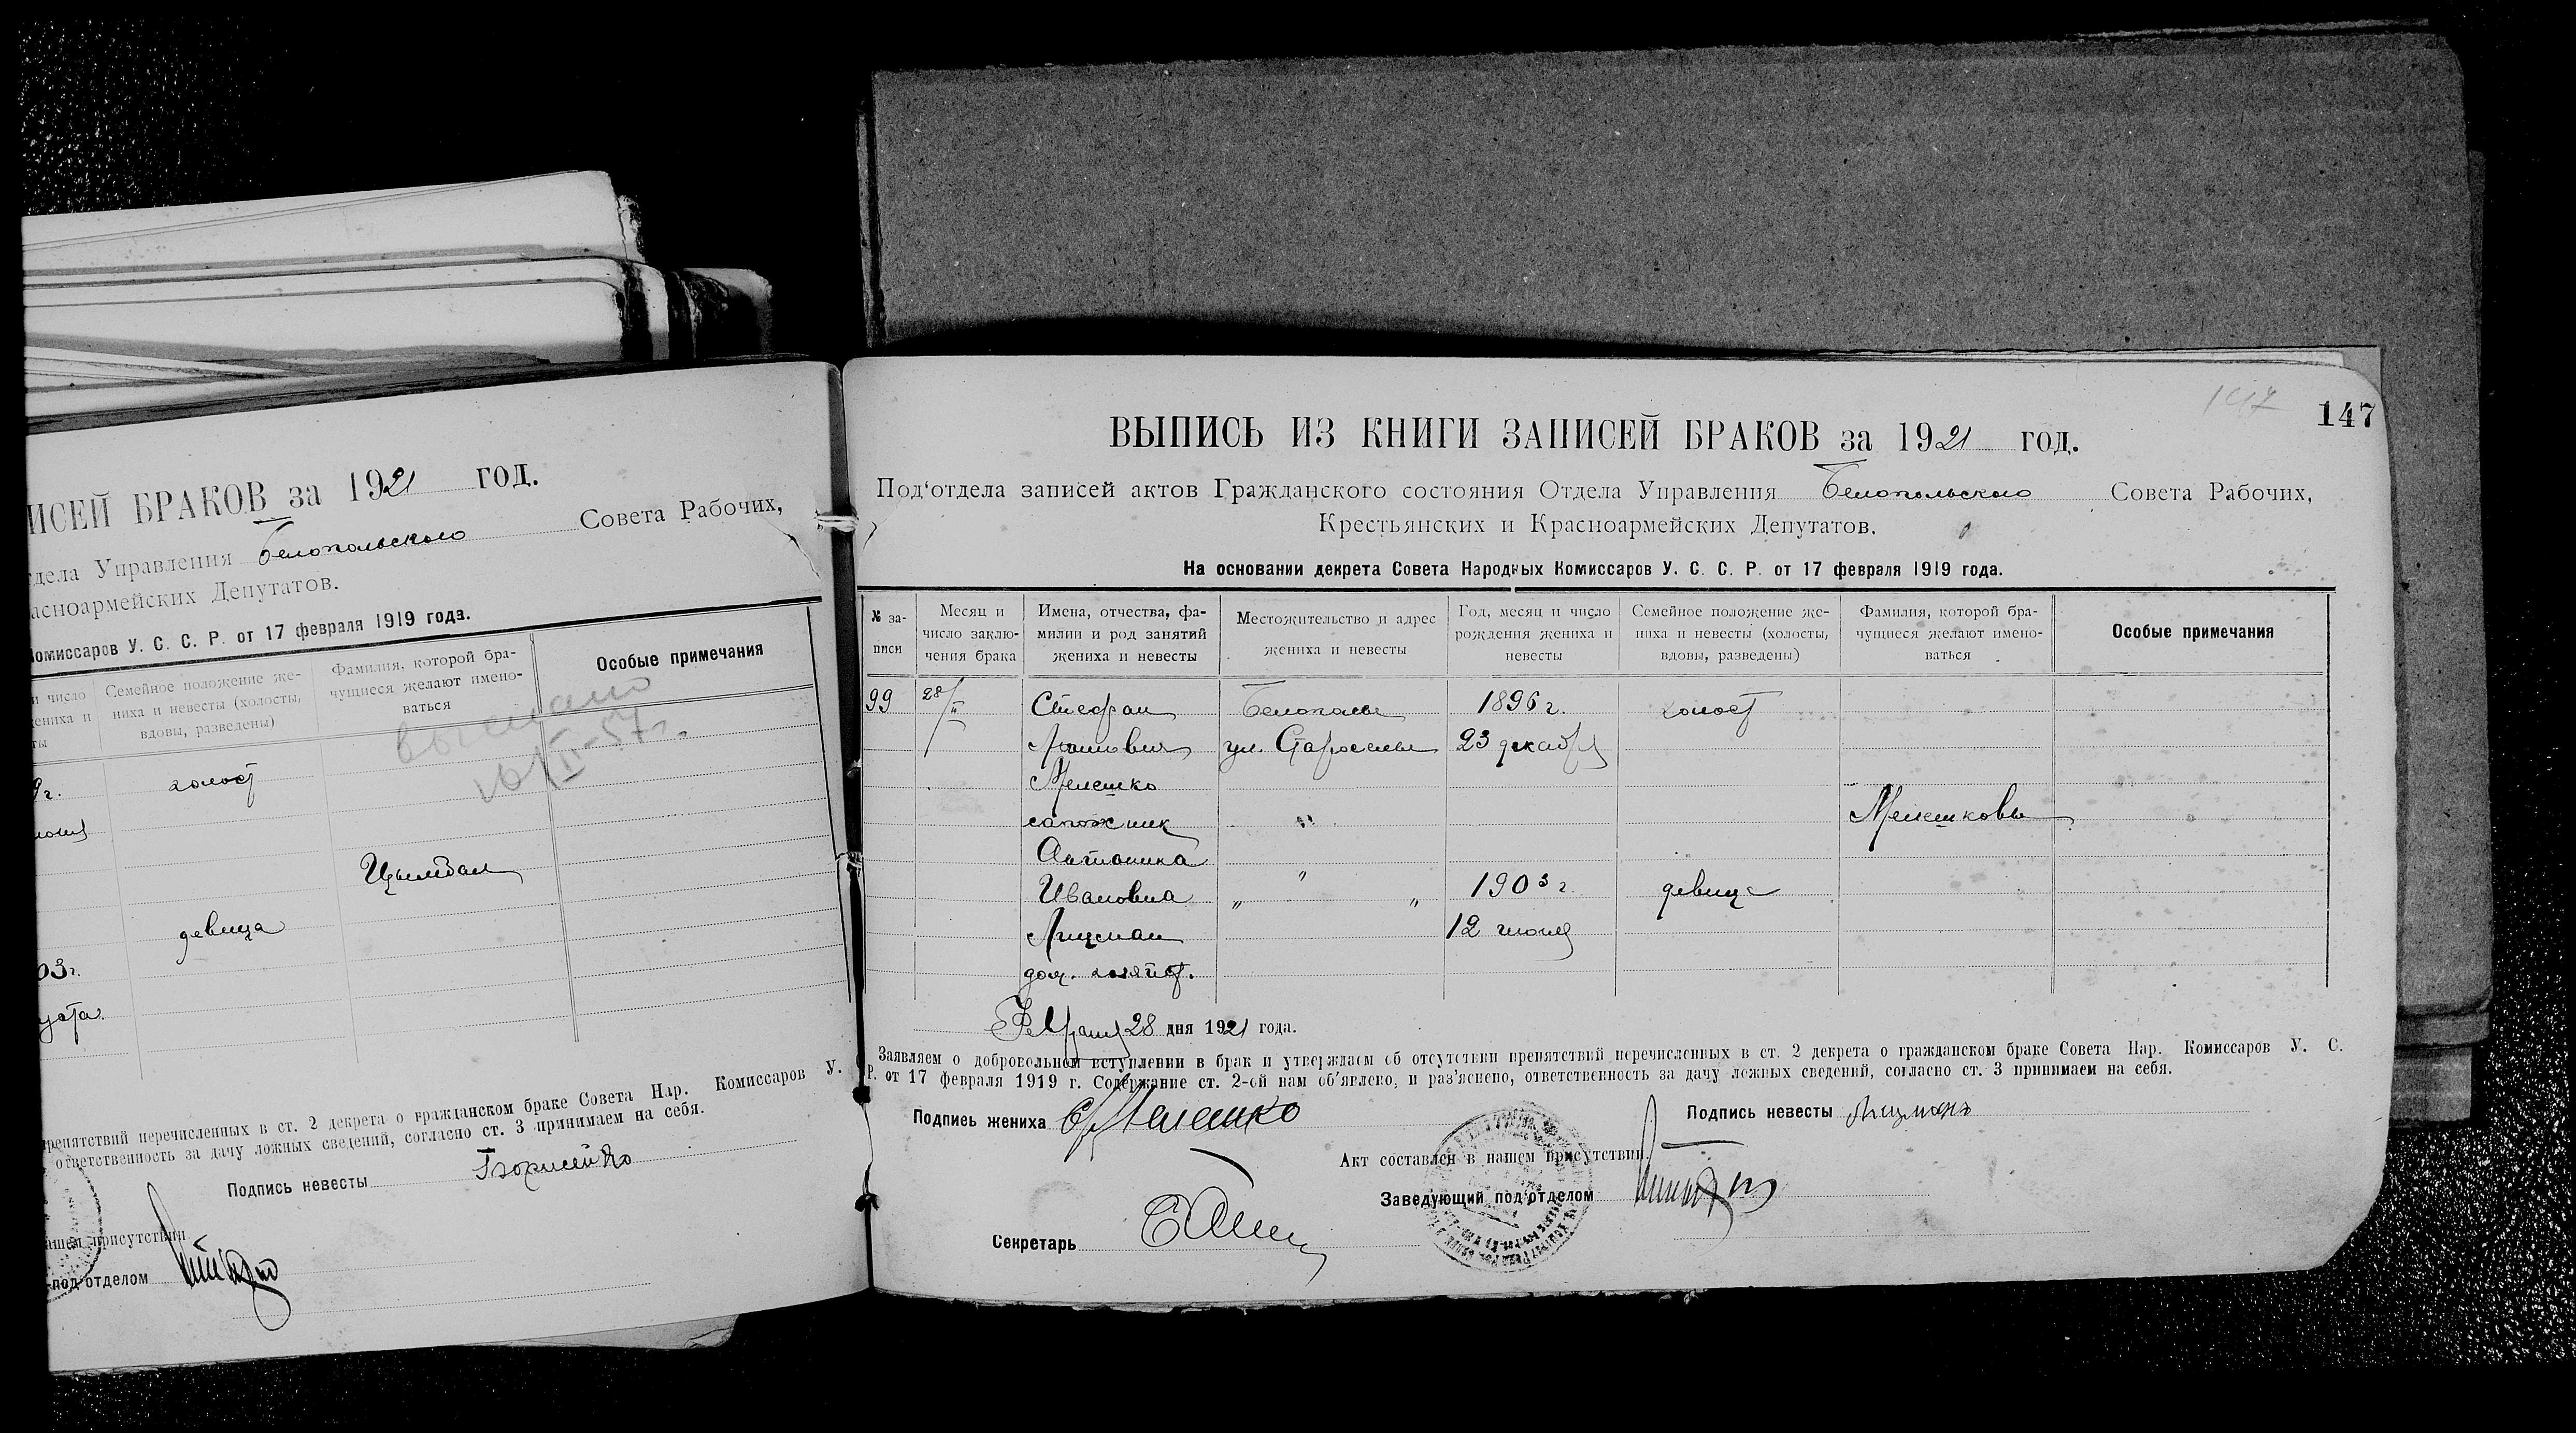 ИСЕЙ БРАКОВ за 1921 год.
тдела Управления Белопольского Совета Рабочих,
асноармейских Депутатов.
Комиссаров У. С. С. Р. от 17 февраля 1919 года.
и число
ениха и
ты
Семейное положение же-
ниха и невесты (холосты,
вдовы, разведены)
Фамилия, которой бра-
чущиеся желают имено-
ваться
Особые примечания
выслано
9 г.
холост
Цымбал
девица
03 г.
уста
репятствий перечисленных в ст. 2 декрета о гражданском браке Совета Нар. Комиссаров У.
ответственность за дачу ложных сведений, согласно ст. 3 принимаем на себя.
Подпись невесты
ашем присутствии
под'отделом
147
147
ВЫПИСЬ ИЗ КНИГИ ЗАПИСЕЙ БРАКОВ за 1921 год.
Под'отдела записей актов Гражданского состояния Отдела Управления Белопольского Совета Рабочих,
Крестьянских и Красноармейских Депутатов.
На основании декрета Совета Народных Комиссаров У. С. С. Р. от 17 февраля 1919 года.
№ за-
писи
Месяц и
число заклю-
чения брака
Имена, отчества, фа-
милии и род занятий
жениха и невесты
Местожительство и адрес
жениха и невесты
Год, месяц и число
рождения жениха и
невесты
Семейное положение же-
ниха и невесты (холосты,
вдовы, разведены)
Фамилия, которой бра-
чущиеся желают имено-
ваться
Особые примечания
99 28/II Стефан Белополье 1896 г. холост
ул. 23 декабря
Мелешко
сапожник " Мелешковы
Антонина
Ивановна " " " 1903 г. девица
Лицман 12 июня
дом. хозяйст.
Февраля 28 дня 1921 года.
Заявляем о добровольном вступлении в брак и утверждаем об отсутствии препятствий перечисленных в ст. 2 декрета о гражданском браке Совета Нар. Комиссаров У. С.
Р. от 17 февраля 1919 г. Содержание ст. 2-ой нам об'явлено, и раз'яснено, ответственность за дачу ложных сведений, согласно ст. 3 принимаем на себя.
Подпись жениха Мелешко
Подпись невесты Лицманъ
Акт составлен в нашем присутствии.
Заведующий под'отделом
Секретарь